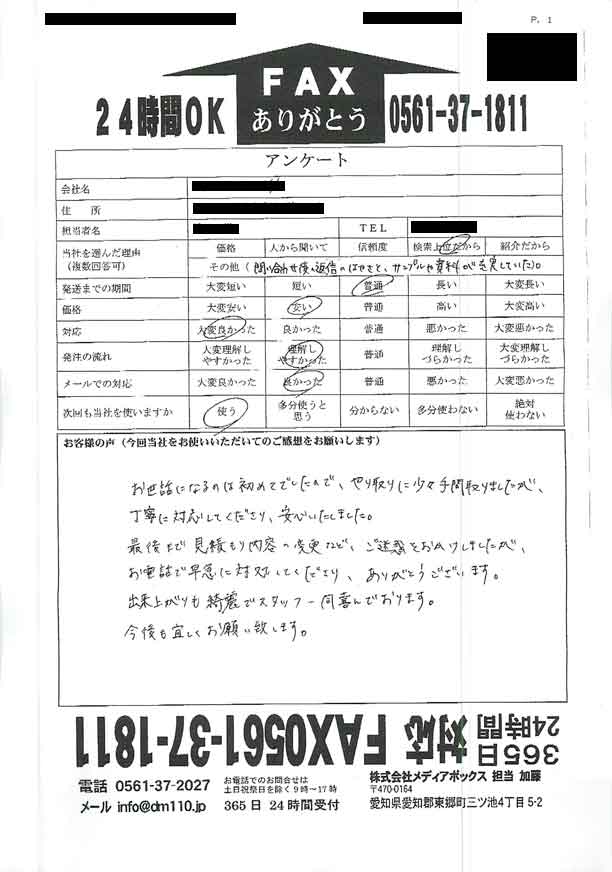 P. 1
FAX
24時間OK ありがとう 0561-37-1811
アンケート
会社名
住 所
担当者名 TEL
当社を選んだ理由 (複数回答可) 価格 人から聞いて 信頼度 検索上位だから 紹介だから
その他 (問い合わせ後の返信のはやさと、サンプルや資料が充実していた)。
発送までの期間 大変短い 短い 普通 長い 大変長い
価格 大変安い 安い 普通 高い 大変高い
対応 大変良かった 良かった 普通 悪かった 大変悪かった
発注の流れ 大変理解しやすかった 理解しやすかった 普通 理解しづらかった 大変理解しづらかった
メールでの対応 大変良かった 良かった 普通 悪かった 大変悪かった
次回も当社を使いますか 使う 多分使うと思う 分からない 多分使わない 絶対使わない
お客様の声 (今回当社をお使いいただいてのご感想をお願いします)
お世話になるのは初めてでしたので、やり取りに少々手間取りましたが、
丁寧に対応してくださり、安心いたしました。
最後まで見積もり内容の変更など、ご迷惑をおかけしましたが、
お電話で早急に対応してくださり、ありがとうございます。
出来上がりも綺麗でスタッフ一同喜んでおります。
今後も宜しくお願い致します。
365日 24時間 対応 FAX0561-37-1811
電話 0561-37-2027 お電話でのお問合せは 土日祝祭日を除く9時〜17時 株式会社メディアボックス 担当 加藤
〒470-0164
メール info@dm110.jp 365日 24時間受付 愛知県愛知郡東郷町三ツ池4丁目5-2